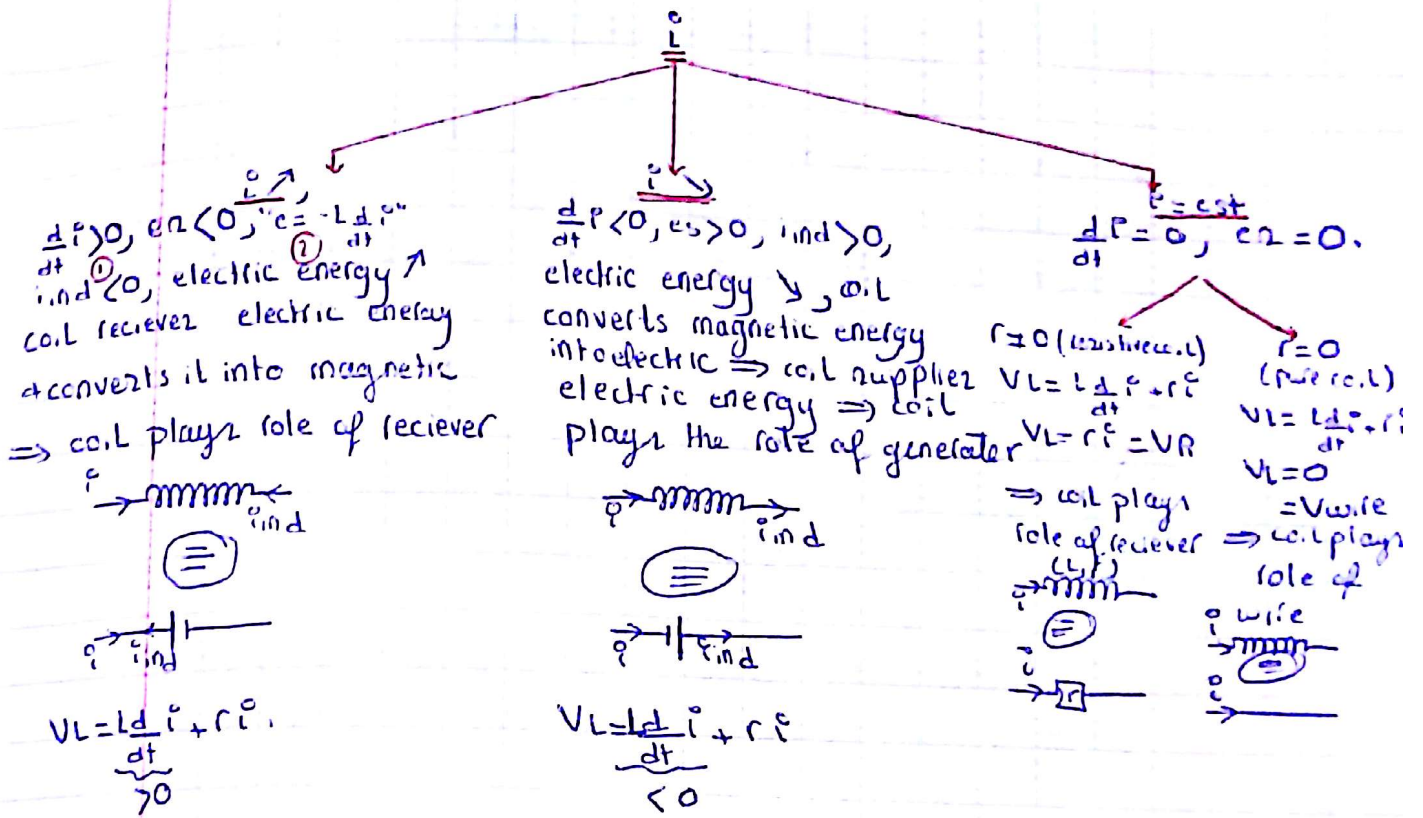 i
i ↗,
d/dt i>0, es<0, "e = -L d/dt i"
① ②
i ind <0, electric energy ↗
coil reciever electric energy
+ converts it into magnetic
=> coil plays role of reciever
i
i ind
≡
i i ind
VL = L d/dt i + ri.
>0
i ↘
d/dt i<0, es>0, i ind >0,
electric energy ↘, coil
converts magnetic energy
into electric => coil supplies
electric energy => coil
plays the role of generator
i i ind
≡
i i ind
VL = L d/dt i + ri
<0
i = cst
d/dt i = 0, es = 0.
r≠0 (resistive c.l)
VL = L d/dt i + ri
VL = ri = VR
=> coil plays
role of reciever
(L,r)
i
=
i
r
r=0
(pure coil)
VL = L d/dt i + ri
VL = 0
= Vwire
=> coil plays
role of
wire
i
=
i